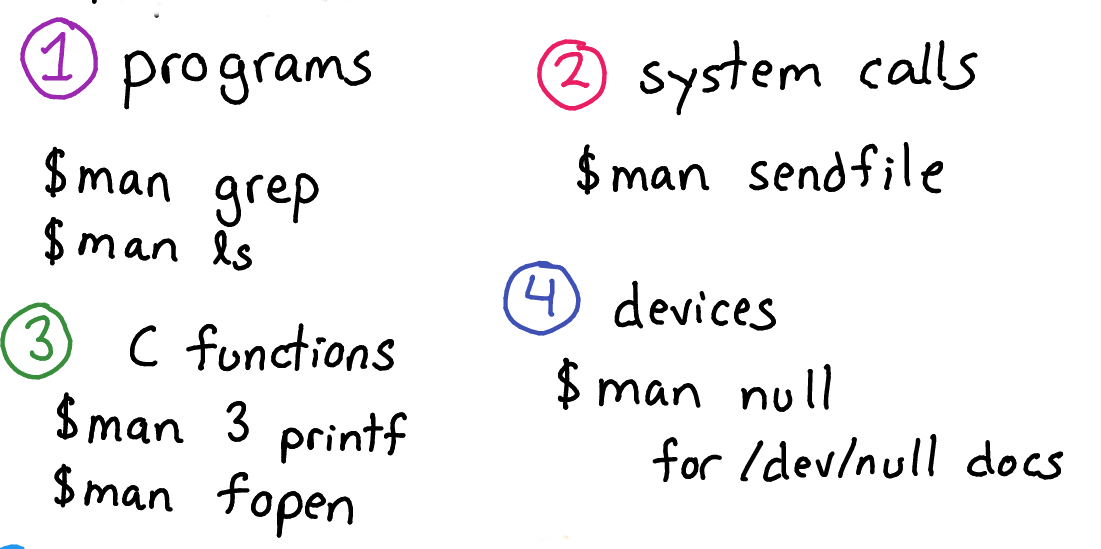 1 programs
$man grep
$man ls
2 system calls
$man sendfile
3 C functions
$man 3 printf
$man fopen
4 devices
$man null
for /dev/null docs